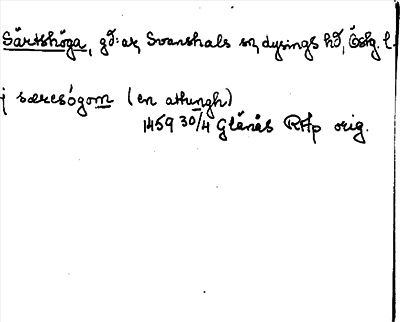 Särtshöga, gd:ar, Svanshals sn, Lysings hd, Östg. l.
j særesógom (en attungh)
1459 30/4 Glänås RAp orig.